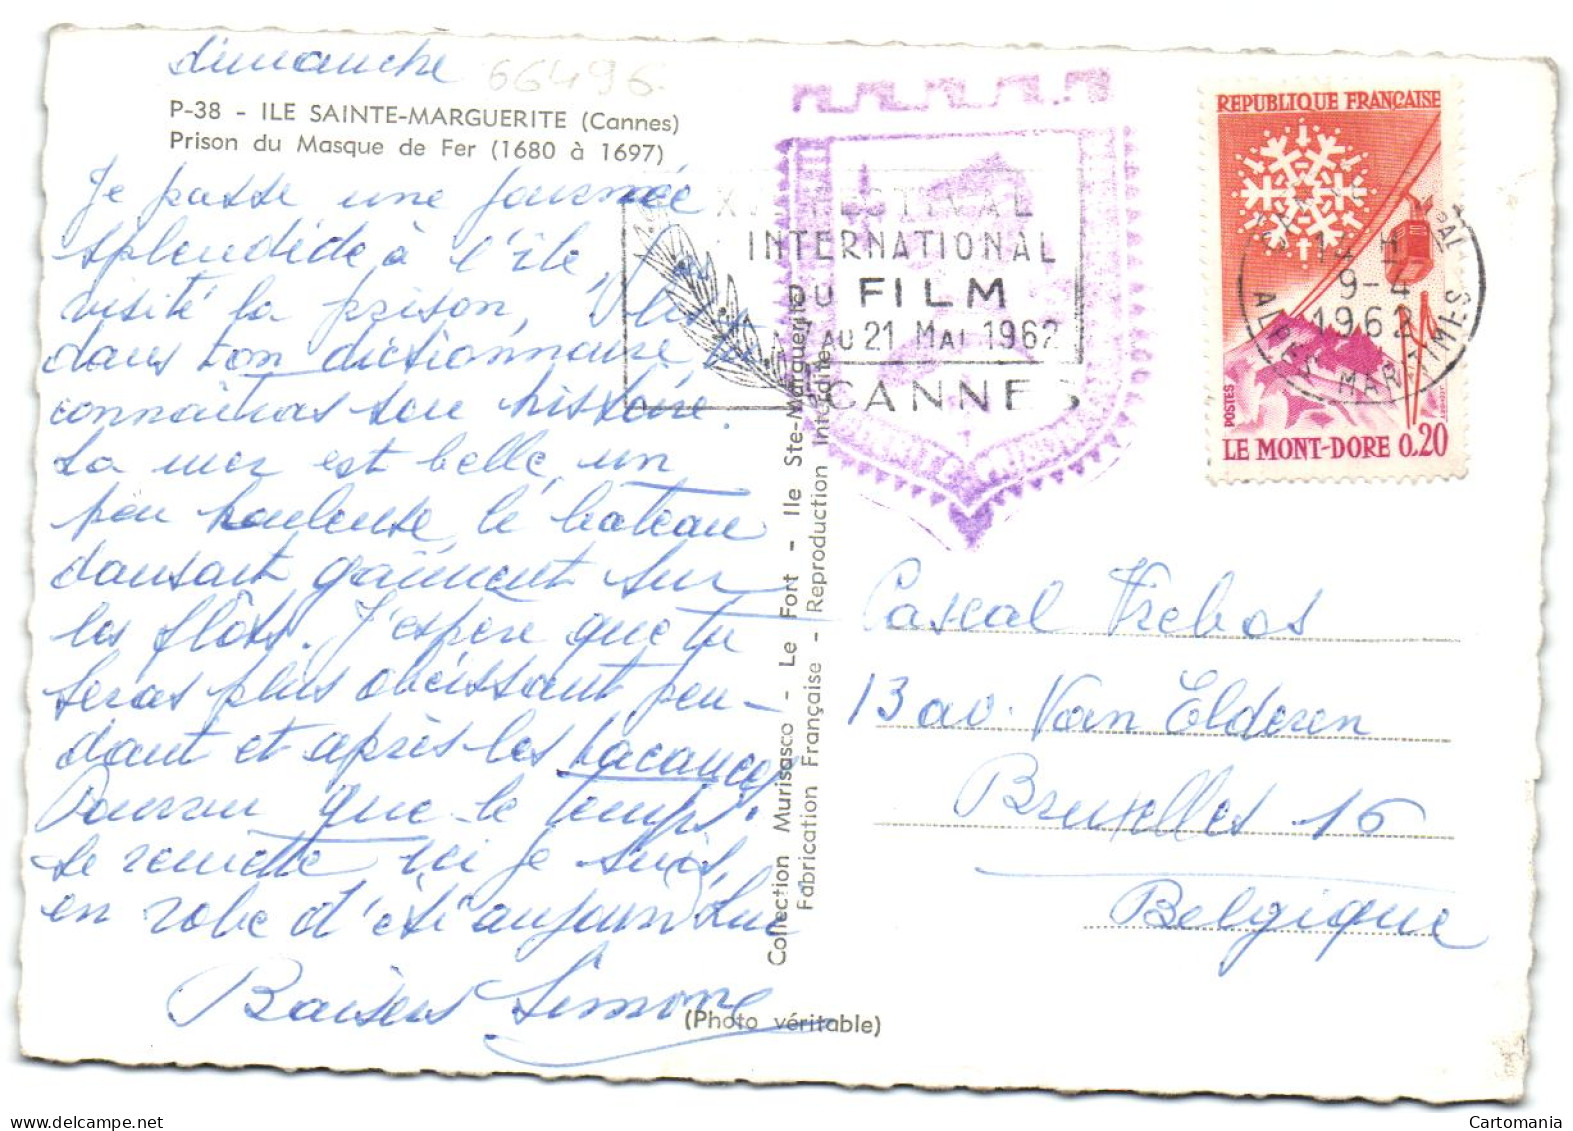 dimanche
66496.
P-38 - ILE SAINTE-MARGUERITE (Cannes)
Prison du Masque de Fer (1680 à 1697)
Je passe une journée
splendide à l'île, j'ai
visité la prison,
dans ton dictionnaire tu
connaîtras son histoire.
La mer est belle, un
peu houleuse, le bateau
dansait gaîment sur
les flots. J'espère que tu
seras plus obéissant pen-
dant et après les vacances
Pourvu que le temps
se remette ici je suis
en robe d'été aujourd'hui
Baisers Simone
(Photo véritable)
Collection Murisasco - Le Fort - Ile Ste-Marguerite
Fabrication Française - Reproduction Interdite
FESTIVAL
INTERNATIONAL
DU FILM
AU 21 MAI 1962
CANNES
REPUBLIQUE FRANÇAISE
POSTES
LE MONT-DORE 0,20
14 H
9-4
1962
ALPES MARITIMES
Pascal Vrebos
13 av. Van Elderen
Bruxelles 16
Belgique
delcampe.net
Cartomania